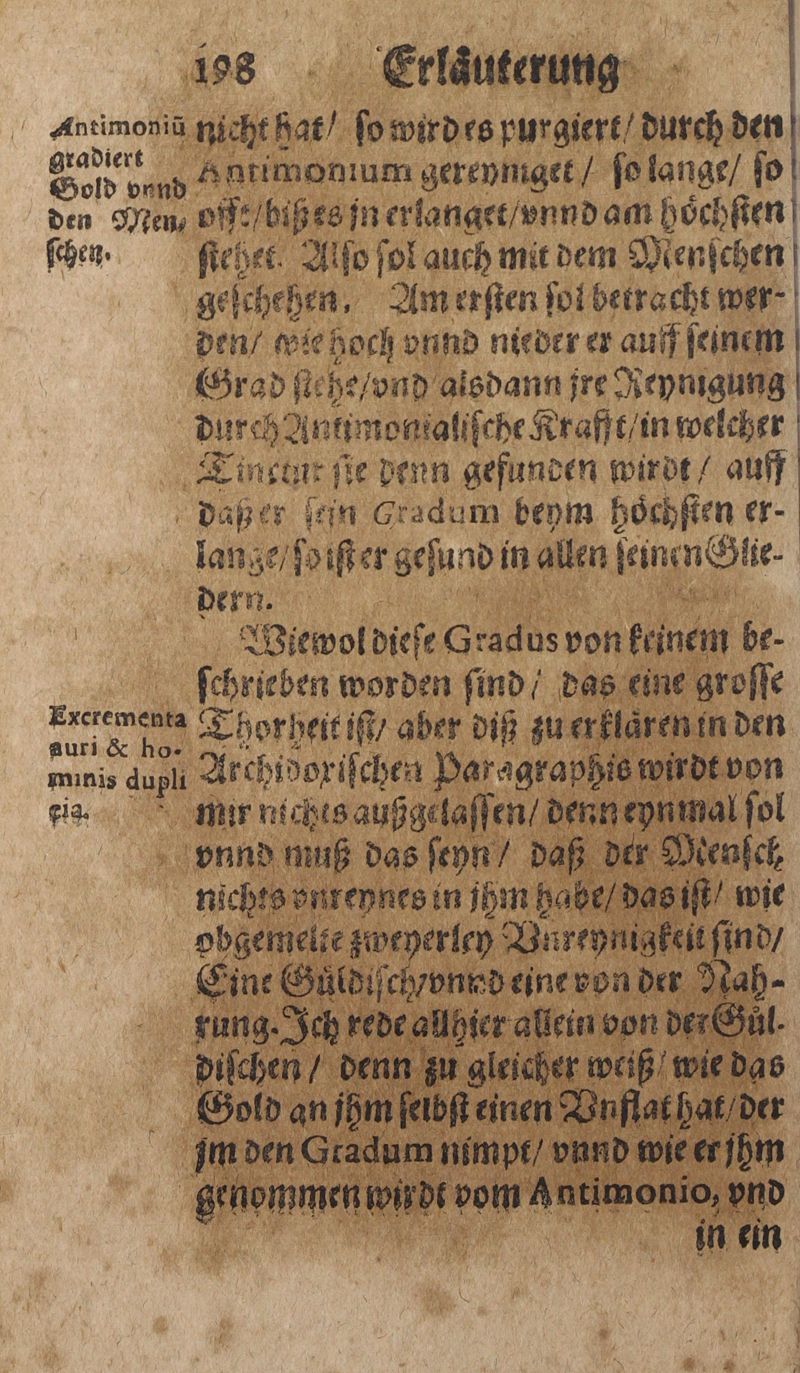 198 Erläuterung
Antimoniū
gradiert
Gold vnnd
den Men⸗
ſchen.
nicht hat/ ſo wird es purgiert/ durch den
Antimonium gereyniget / ſo lange/ ſo
offt/ biß es jn erlanget/ vnnd am höchſten
ſtehet. Alſo ſol auch mit dem Menſchen
geſchehen. Am erſten ſol betracht wer-
den/ wie hoch vnnd nieder er auff ſeinem
Grad ſtehe/ vnd alsdann jre Reynigung
durch Antimonialiſche Krafft/ in welcher
Tinctur ſie denn gefunden wirdt / auff
daß er ſein Gradum beym höchſten er-
lange/ ſo iſt er geſund in allen ſeinen Glie-
dern.
Wiewol dieſe Gradus von keinem be-
ſchrieben worden ſind / das eine groſſe
Excrementa
auri & ho-
minis dupli
cia.
Thorheit iſt/ aber diß zu erklären in den
Archidoxiſchen Paragraphis wirdt von
mir nichts außgelaſſen/ denn eynmal ſol
vnnd muß das ſeyn / daß der Menſch
nichts vnreynes in jhm habe/ das iſt/ wie
obgemelte zweyerley Vnreynigkeit ſind/
Eine Güldiſch/ vnnd eine von der Nah-
rung. Ich rede allhier allein von der Gül-
diſchen / denn zu gleicher weiß/ wie das
Gold an jhm ſelbſt einen Vnflat hat/ der
jm den Gradum nimpt/ vnnd wie er jhm
genommen wirdt vom Antimonio, vnd
in ein